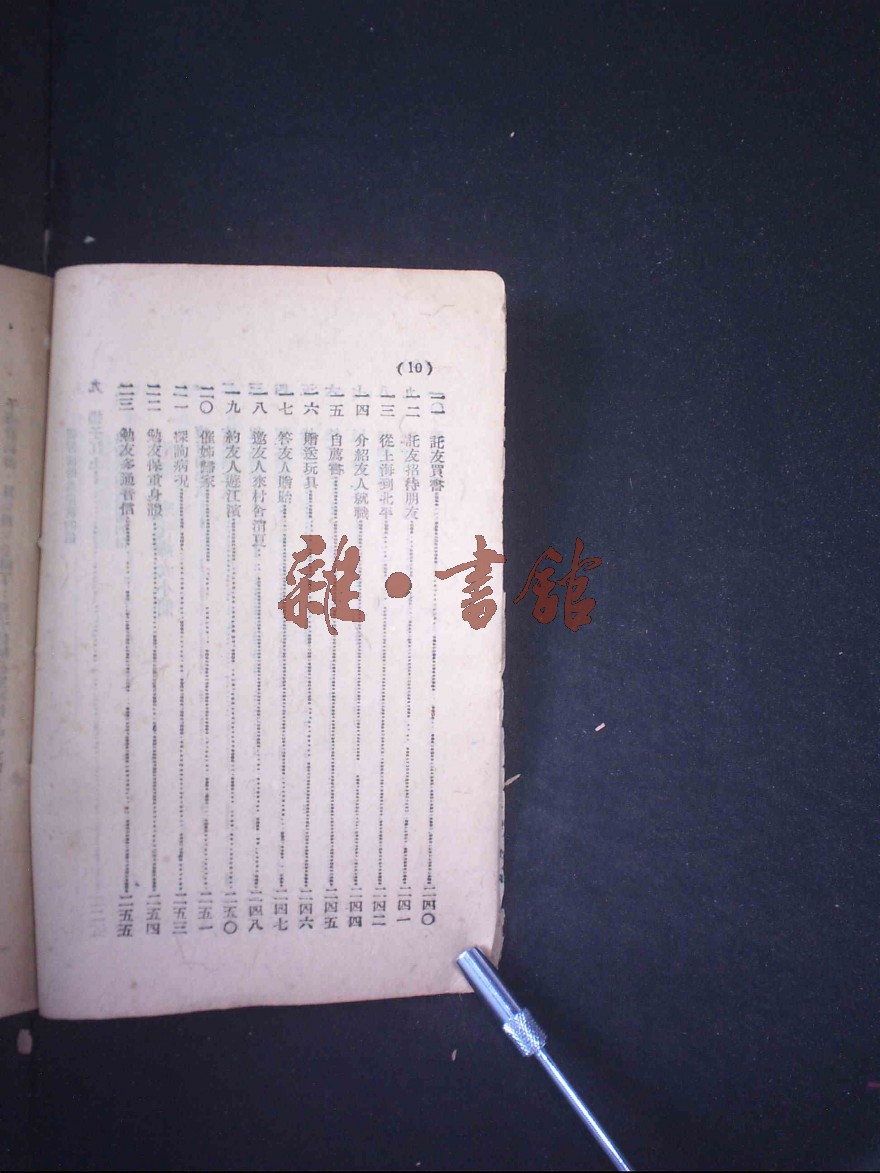 (10)
一一 託友買書 二四〇
一二 託友招待朋友 二四一
一三 從上海到北平 二四二
一四 介紹友人就職 二四四
一五 自薦書 二四五
一六 贈送玩具 二四六
一七 答友人賻貽 二四七
一八 邀友人來村舍消夏 二四八
一九 約友人遊江濱 二五〇
二〇 催姊歸家 二五一
二一 探詢病況 二五三
二二 勉友保重身體 二五四
二三 勉友多通音信 二五五
雜·書館